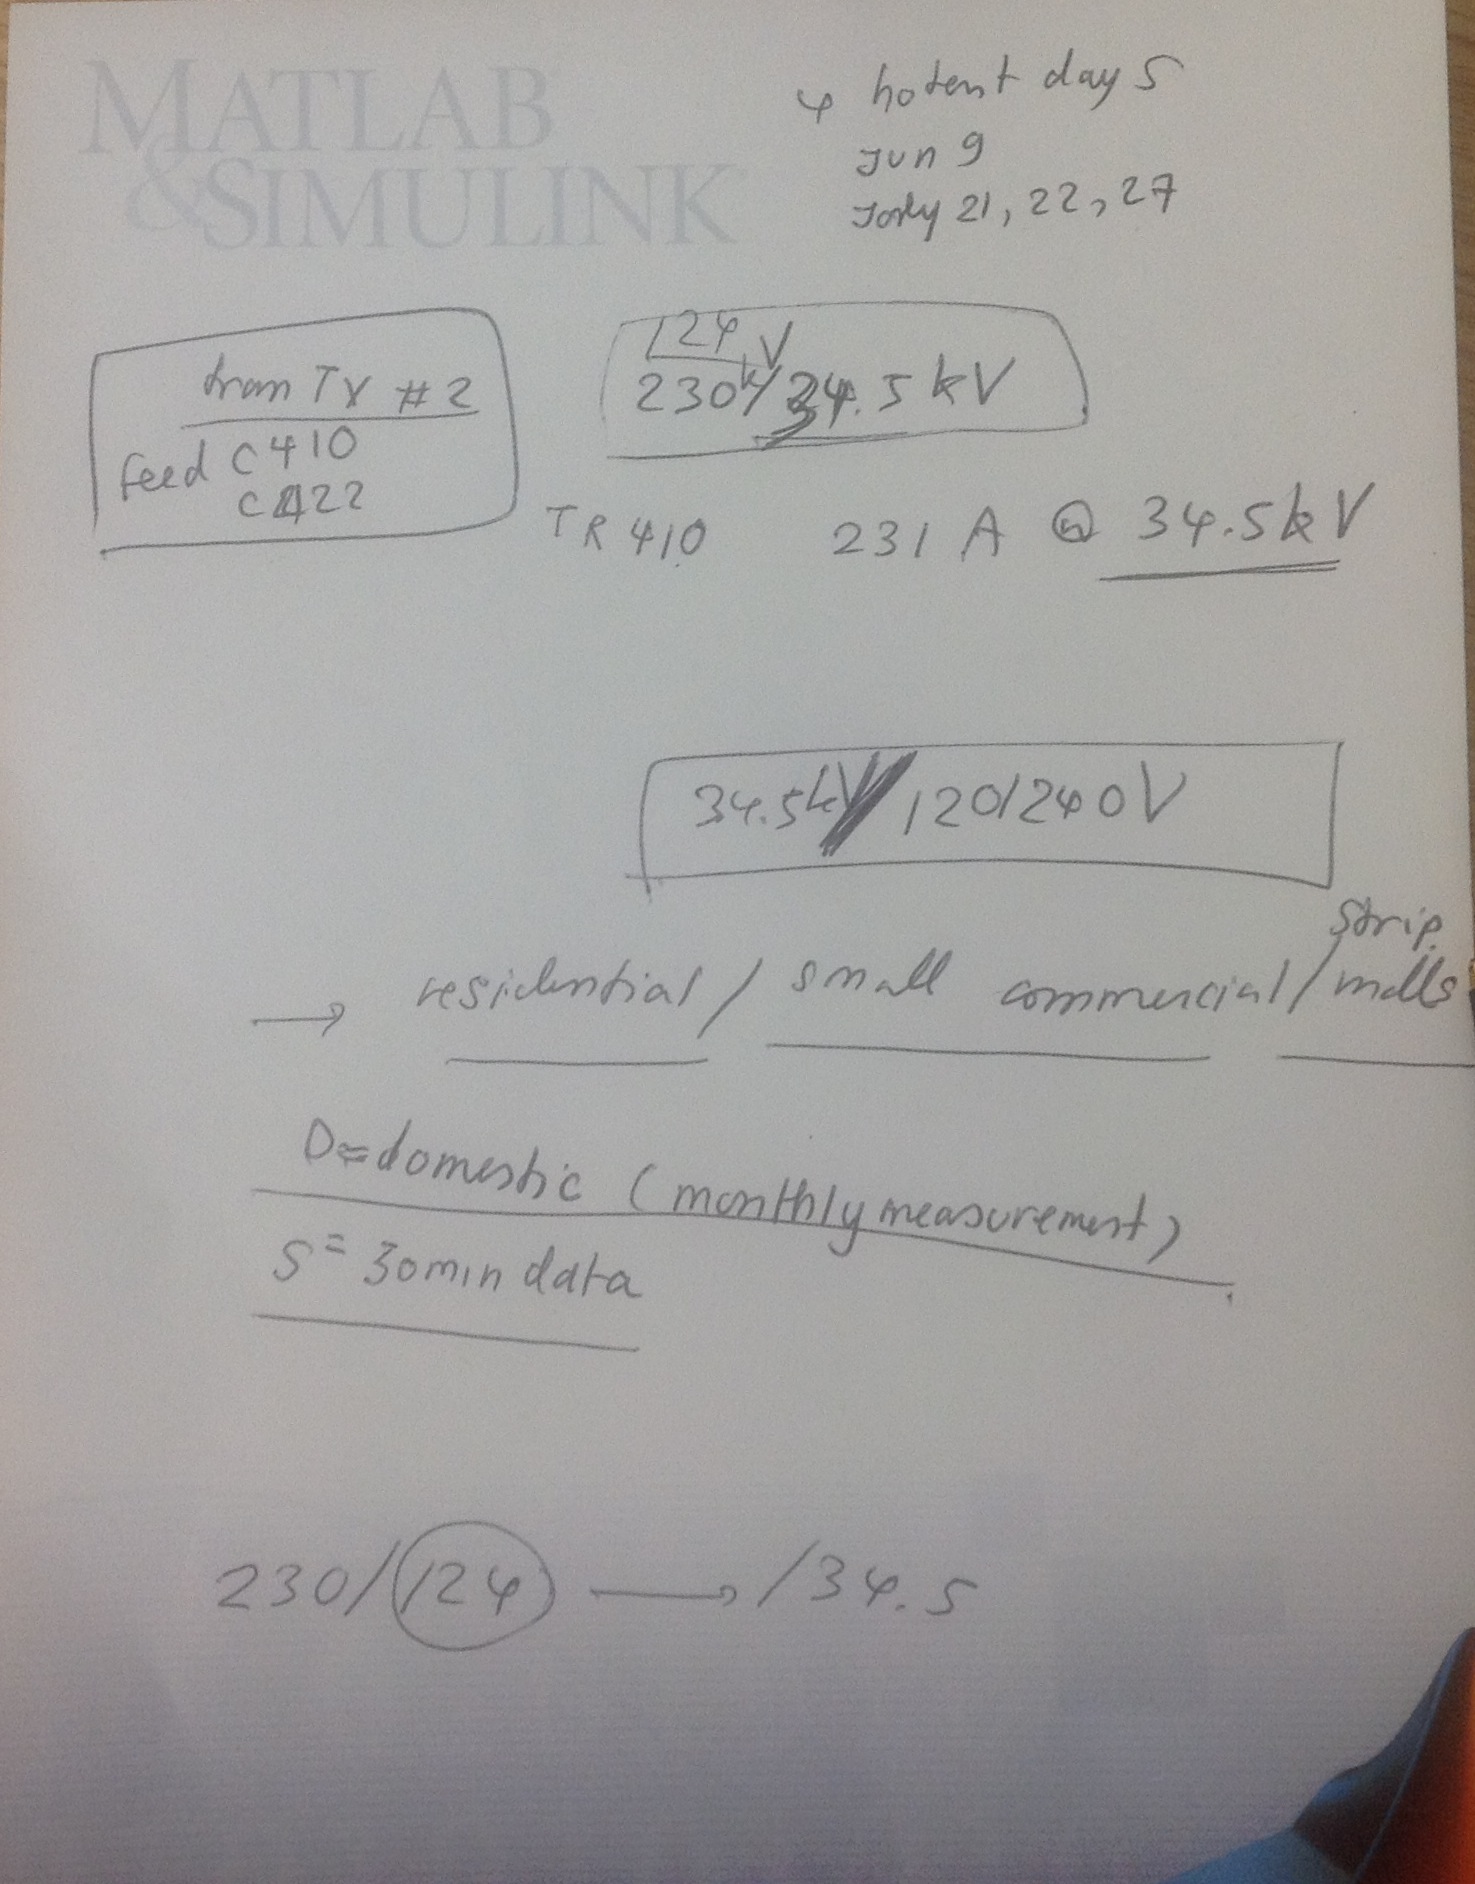 MATLAB
&SIMULINK
4 hotest days
Jun 9
July 21, 22, 27
from TX #2
Feed C410
C422
124 V
230k/34.5 kV
TR 410 231 A @ 34.5kV
34.5kV/120/240V
→ residential / small commercial / strip malls
D=domestic (monthly measurement)
S= 30min data
230/124 → /34.5